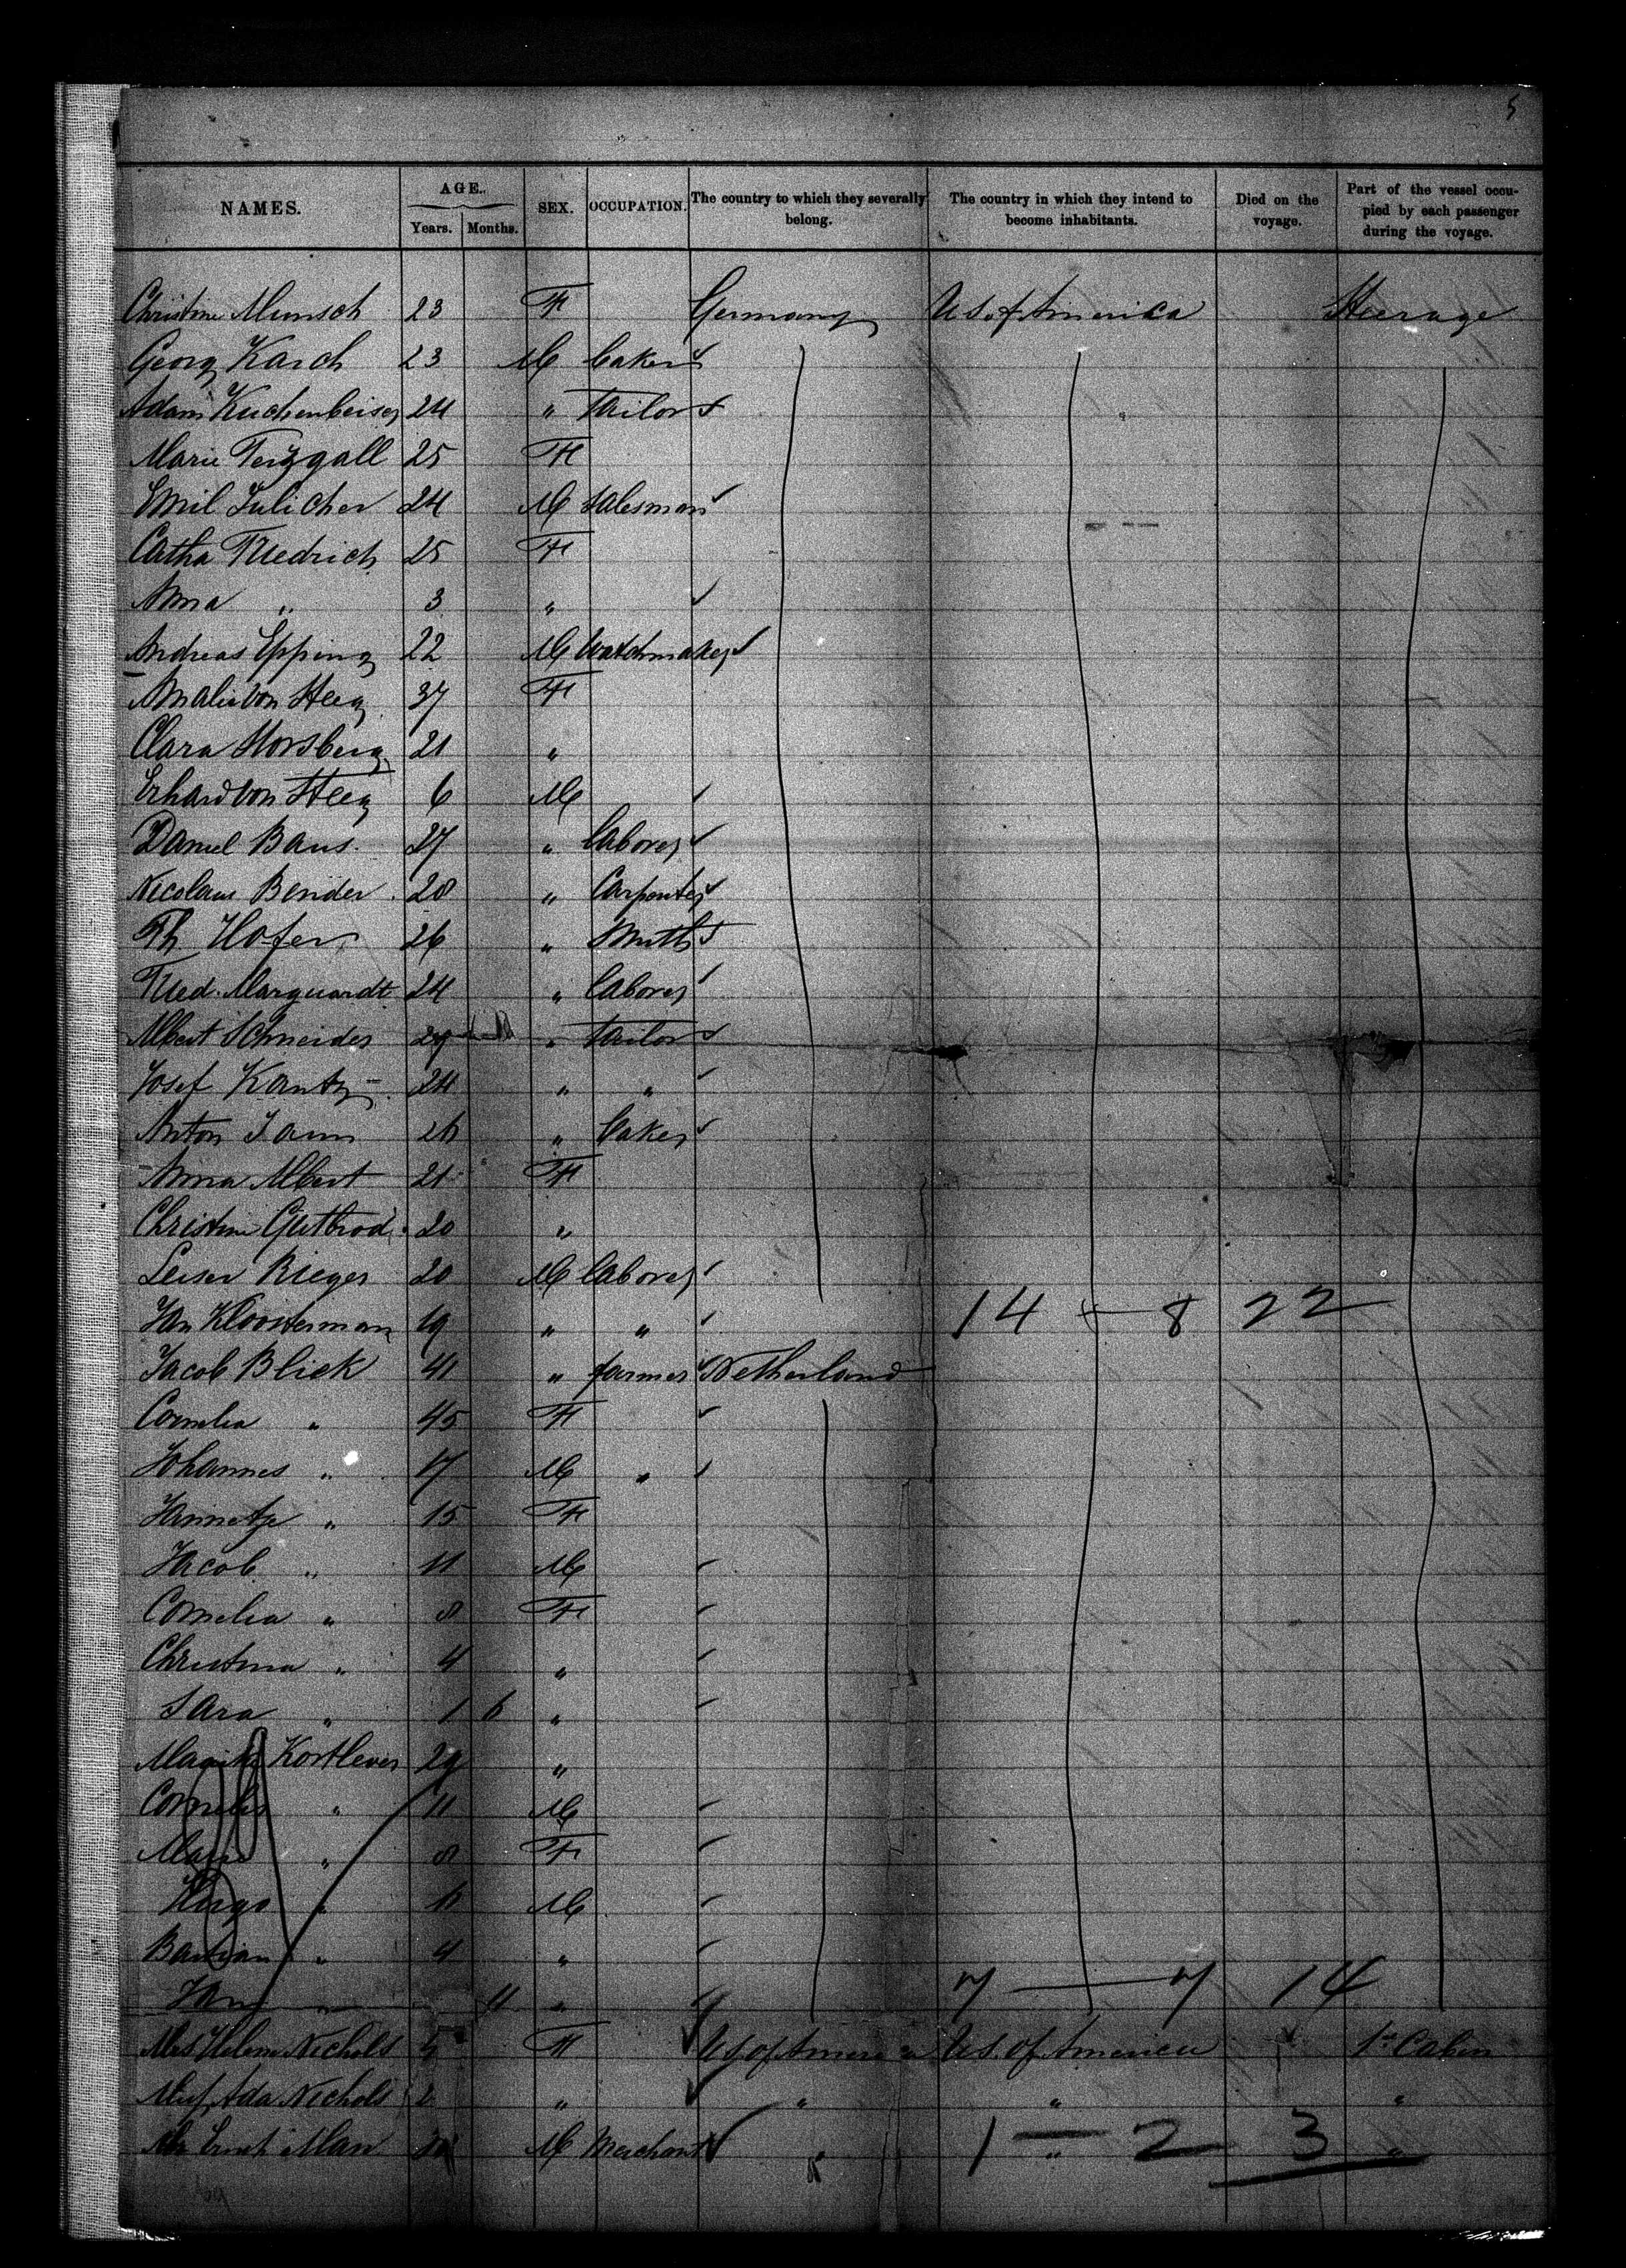 5
NAMES. AGE. Years. Months. SEX. OCCUPATION. The country to which they severally belong. The country in which they intend to become inhabitants. Died on the voyage. Part of the vessel occupied by each passenger during the voyage.
Christine Munsch 23 F Germany U.S. of America Steerage
Georg Karch 23 M baker
Adam Kuchenbeiser 24 " tailor
Marie 25 F
Emil Julicher 24 M salesman
Catha Friedrich 25 F
Anna " 3 "
Andreas Epping 22 M Watchmaker
Amalie von Heeg 37 F
Clara Horsberg 21 "
Erhard von Heeg 6 M
Daniel Baus. 27 " laborer
Nicolaus Bender 28 " Carpenter
Th. Hofer 26 " Smith
Fried. Marquardt 24 " laborer
Albert Schneider 29 " tailor
Josef Kantz 24 " "
Anton 26 " baker
Anna Albert 21 F
Christine Gutbrod 20 "
Leiser Rieger 20 M laborer
Jan Kloosterman 19 " " 14 — 8 22
Jacob Bliek 41 " farmer Netherland
Cornelia " 45 F
Johannes " 17 M "
Jannetje " 15 F
Jacob " 11 M
Cornelia " 8 F
Christina " 4 "
Sara " 1 6 "
Kortlever 29 "
Cornelis " 11 M
" 8 F
" M
Bastian " 4 "
Jan " 11 " 7 — 7 14
Mrs Helene Nichols F U.S. of America U.S. of America 1st Cabin
Miss Ada Nichols " " " "
Mr Man M Merchant " " "
1 — 2 3